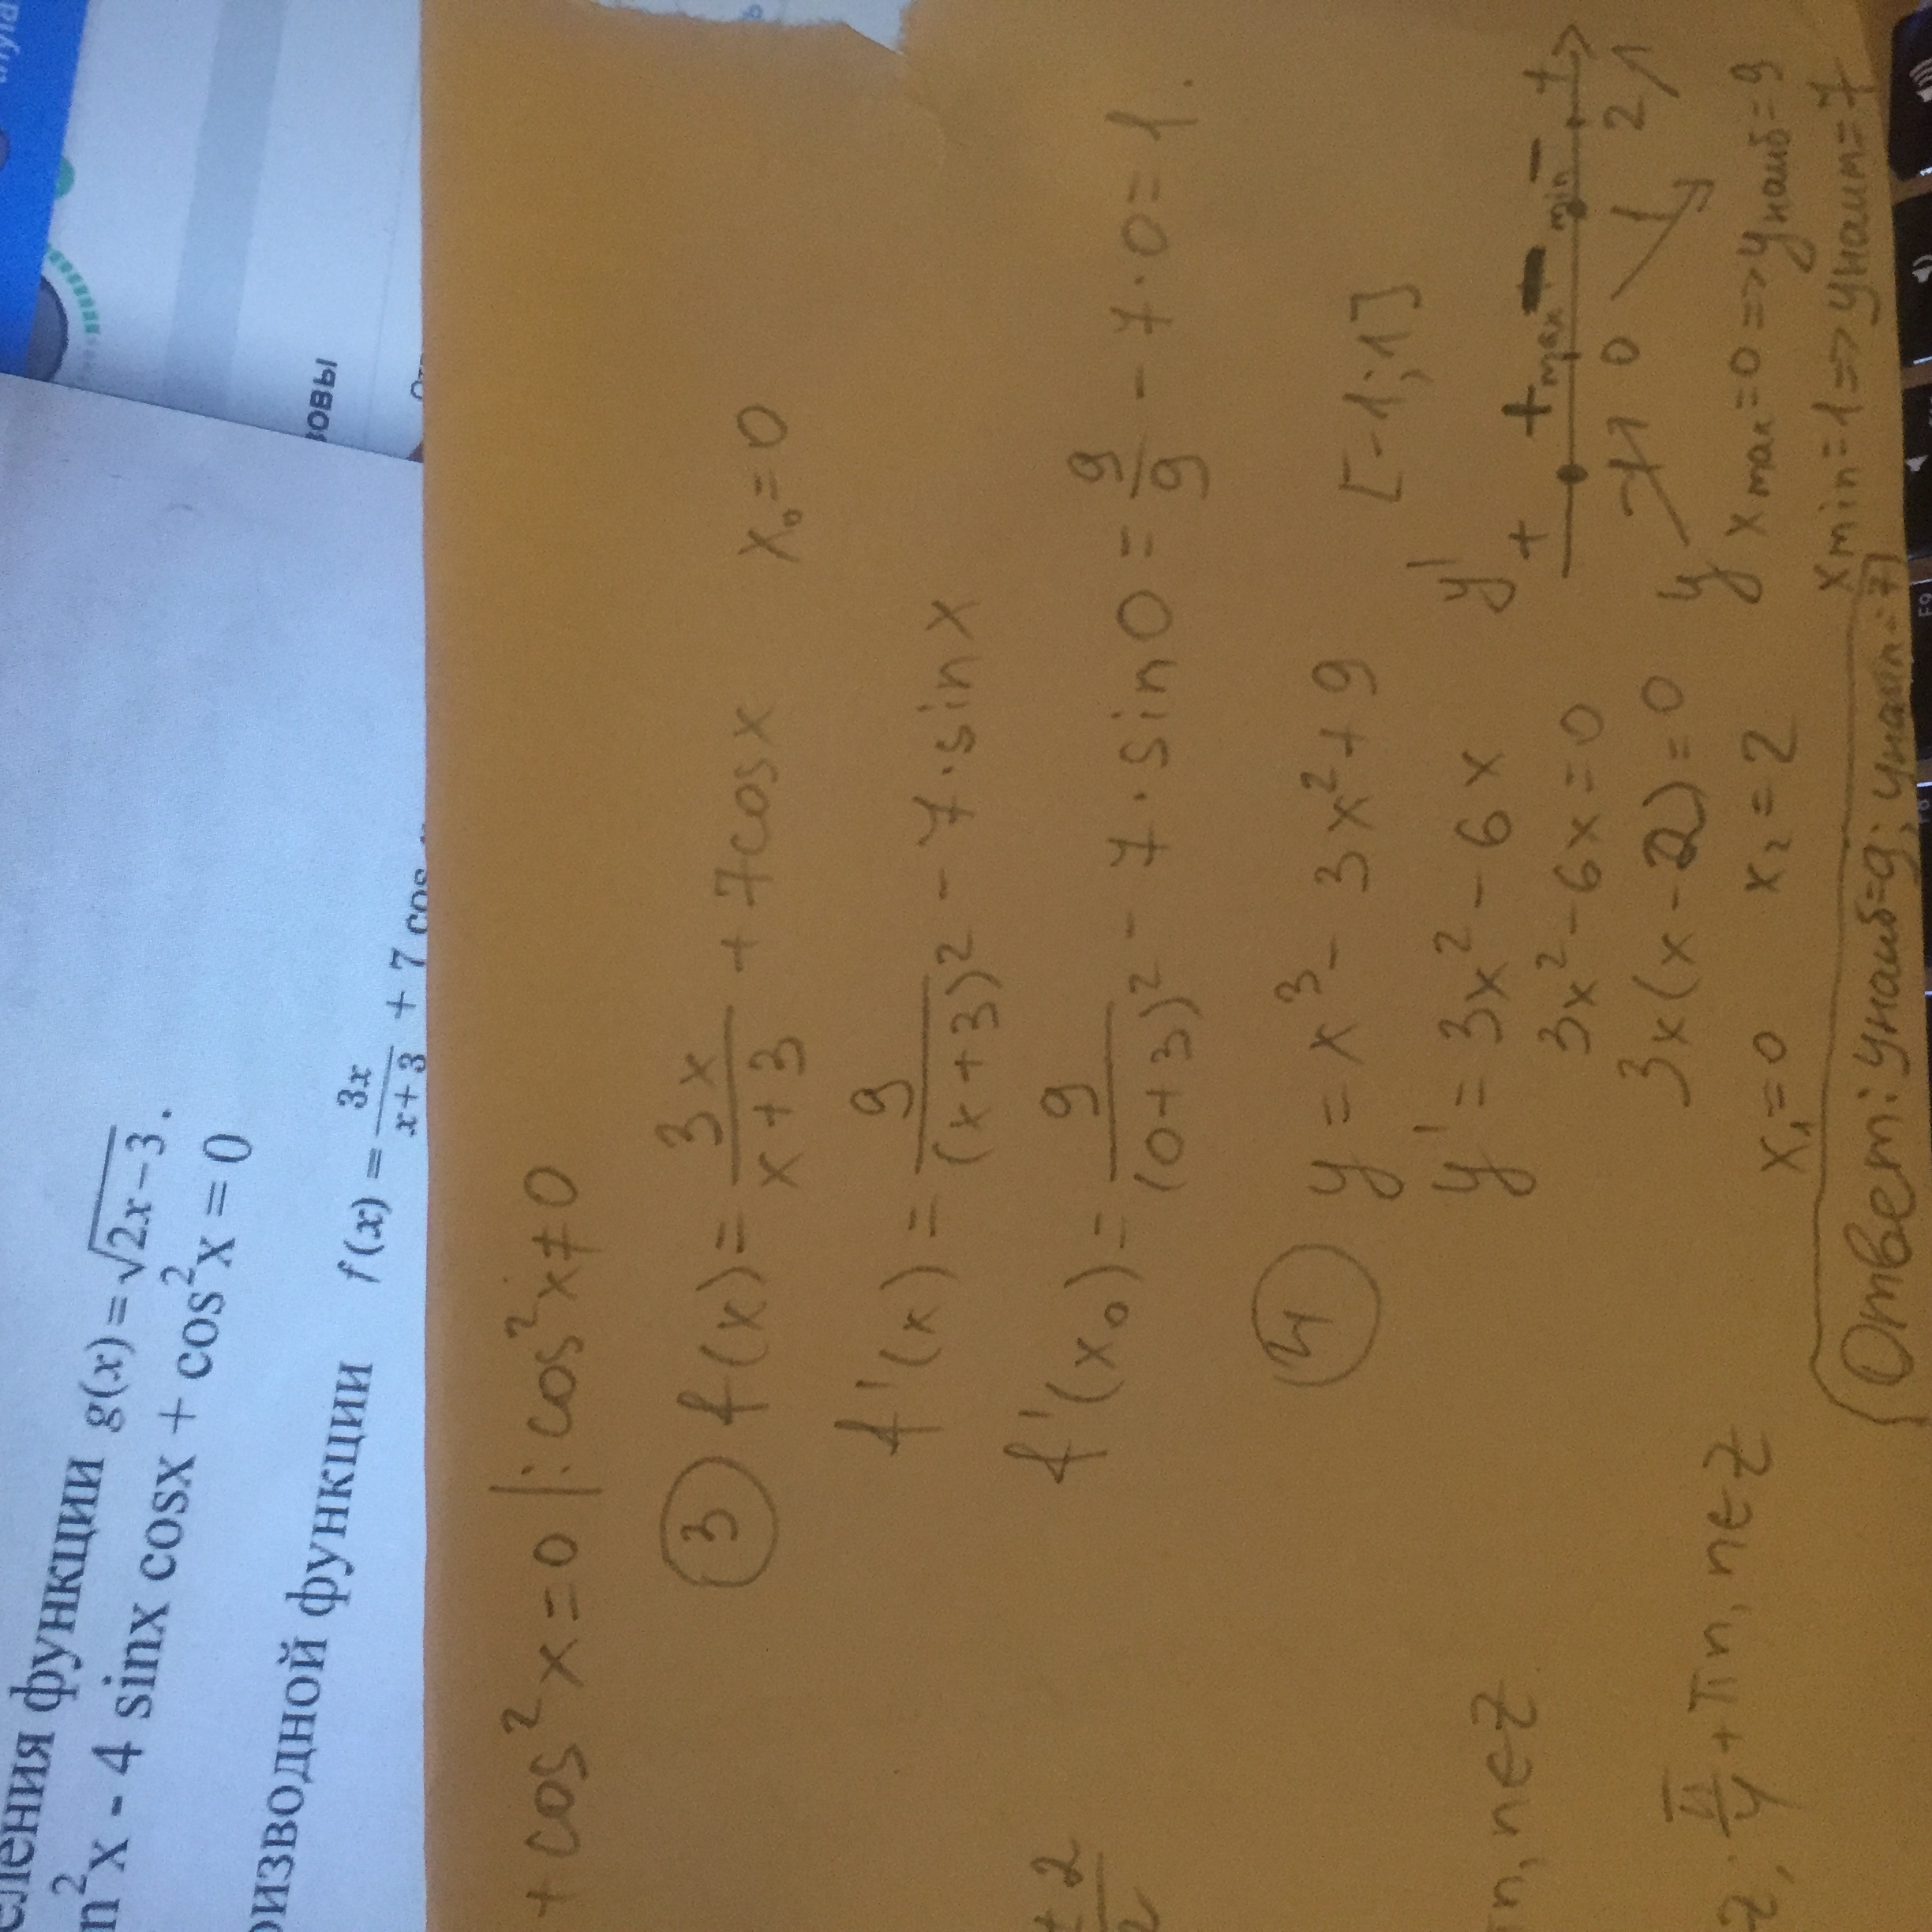 еления функции g(x) = √2x−3.
n²x - 4 sinx cosx + cos²x = 0
оизводной функции f(x) = 3x/x+3 + 7 cos
зовы
+ cos²x = 0 |: cos²x ≠ 0
③ f(x) = 3x/x+3 + 7cosx x₀ = 0
f'(x) = 9/(x+3)² - 7·sinx
f'(x₀) = 9/(0+3)² - 7·sin0 = 9/9 - 7·0 = 1.
④ y = x³ - 3x² + 9 [-1;1]
y' = 3x² - 6x
3x² - 6x = 0
3x(x-2) = 0
x₁=0 x₂=2
y' + + max - min - +
-1 0 1 2
y
y
x max = 0 => y наиб = 9
x min = 1 => y наим = 7
Ответ: y наиб = 9; y наим = 7
πn, n∈Z
Z; π/4 + πn, n∈Z